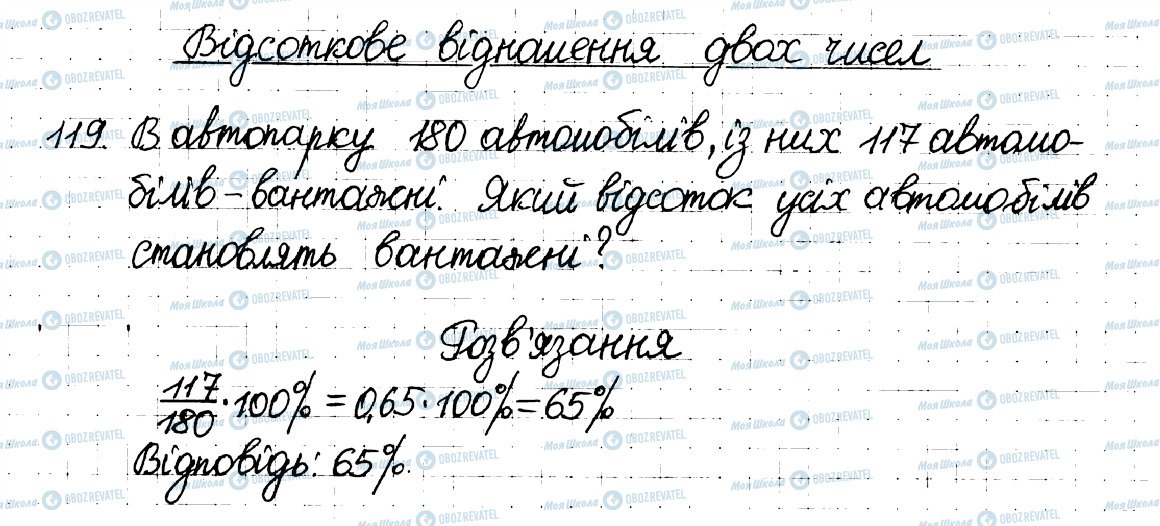 Відсоткове відношення двох чисел
119. В автопарку 180 автомобілів, із них 117 автомо-
білів - вантажні. Який відсоток усіх автомобілів
становлять вантажні?
Розв'язання
117/180 · 100% = 0,65 · 100% = 65%
Відповідь: 65%.